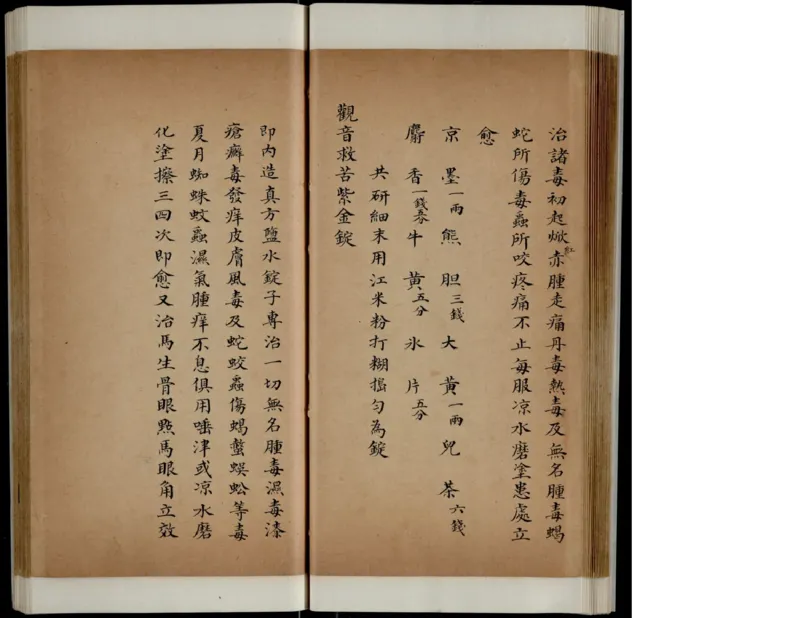 治諸毒初起焮赤腫走痛丹毒熱毒及無名腫毒蝎
紅
蛇所傷毒蟲所咬疼痛不止每服凉水磨塗患處立
愈
京墨一兩熊胆三錢大黄一兩兒茶六錢
麝香一錢牛黄五分氷片五分
共研細末用江米粉打糊搗匀為錠
觀音救苦紫金錠
即内造真方鹽水錠子專治一切無名腫毒濕毒漆
瘡癬毒發痒皮膚風毒及蛇蛟蟲傷蝎螫蜈蚣等毒
夏月蜘蛛蚊蟲濕氣腫痒不息俱用唾津或凉水磨
化塗擦三四次即愈又治馬生骨眼㸃馬眼角立效